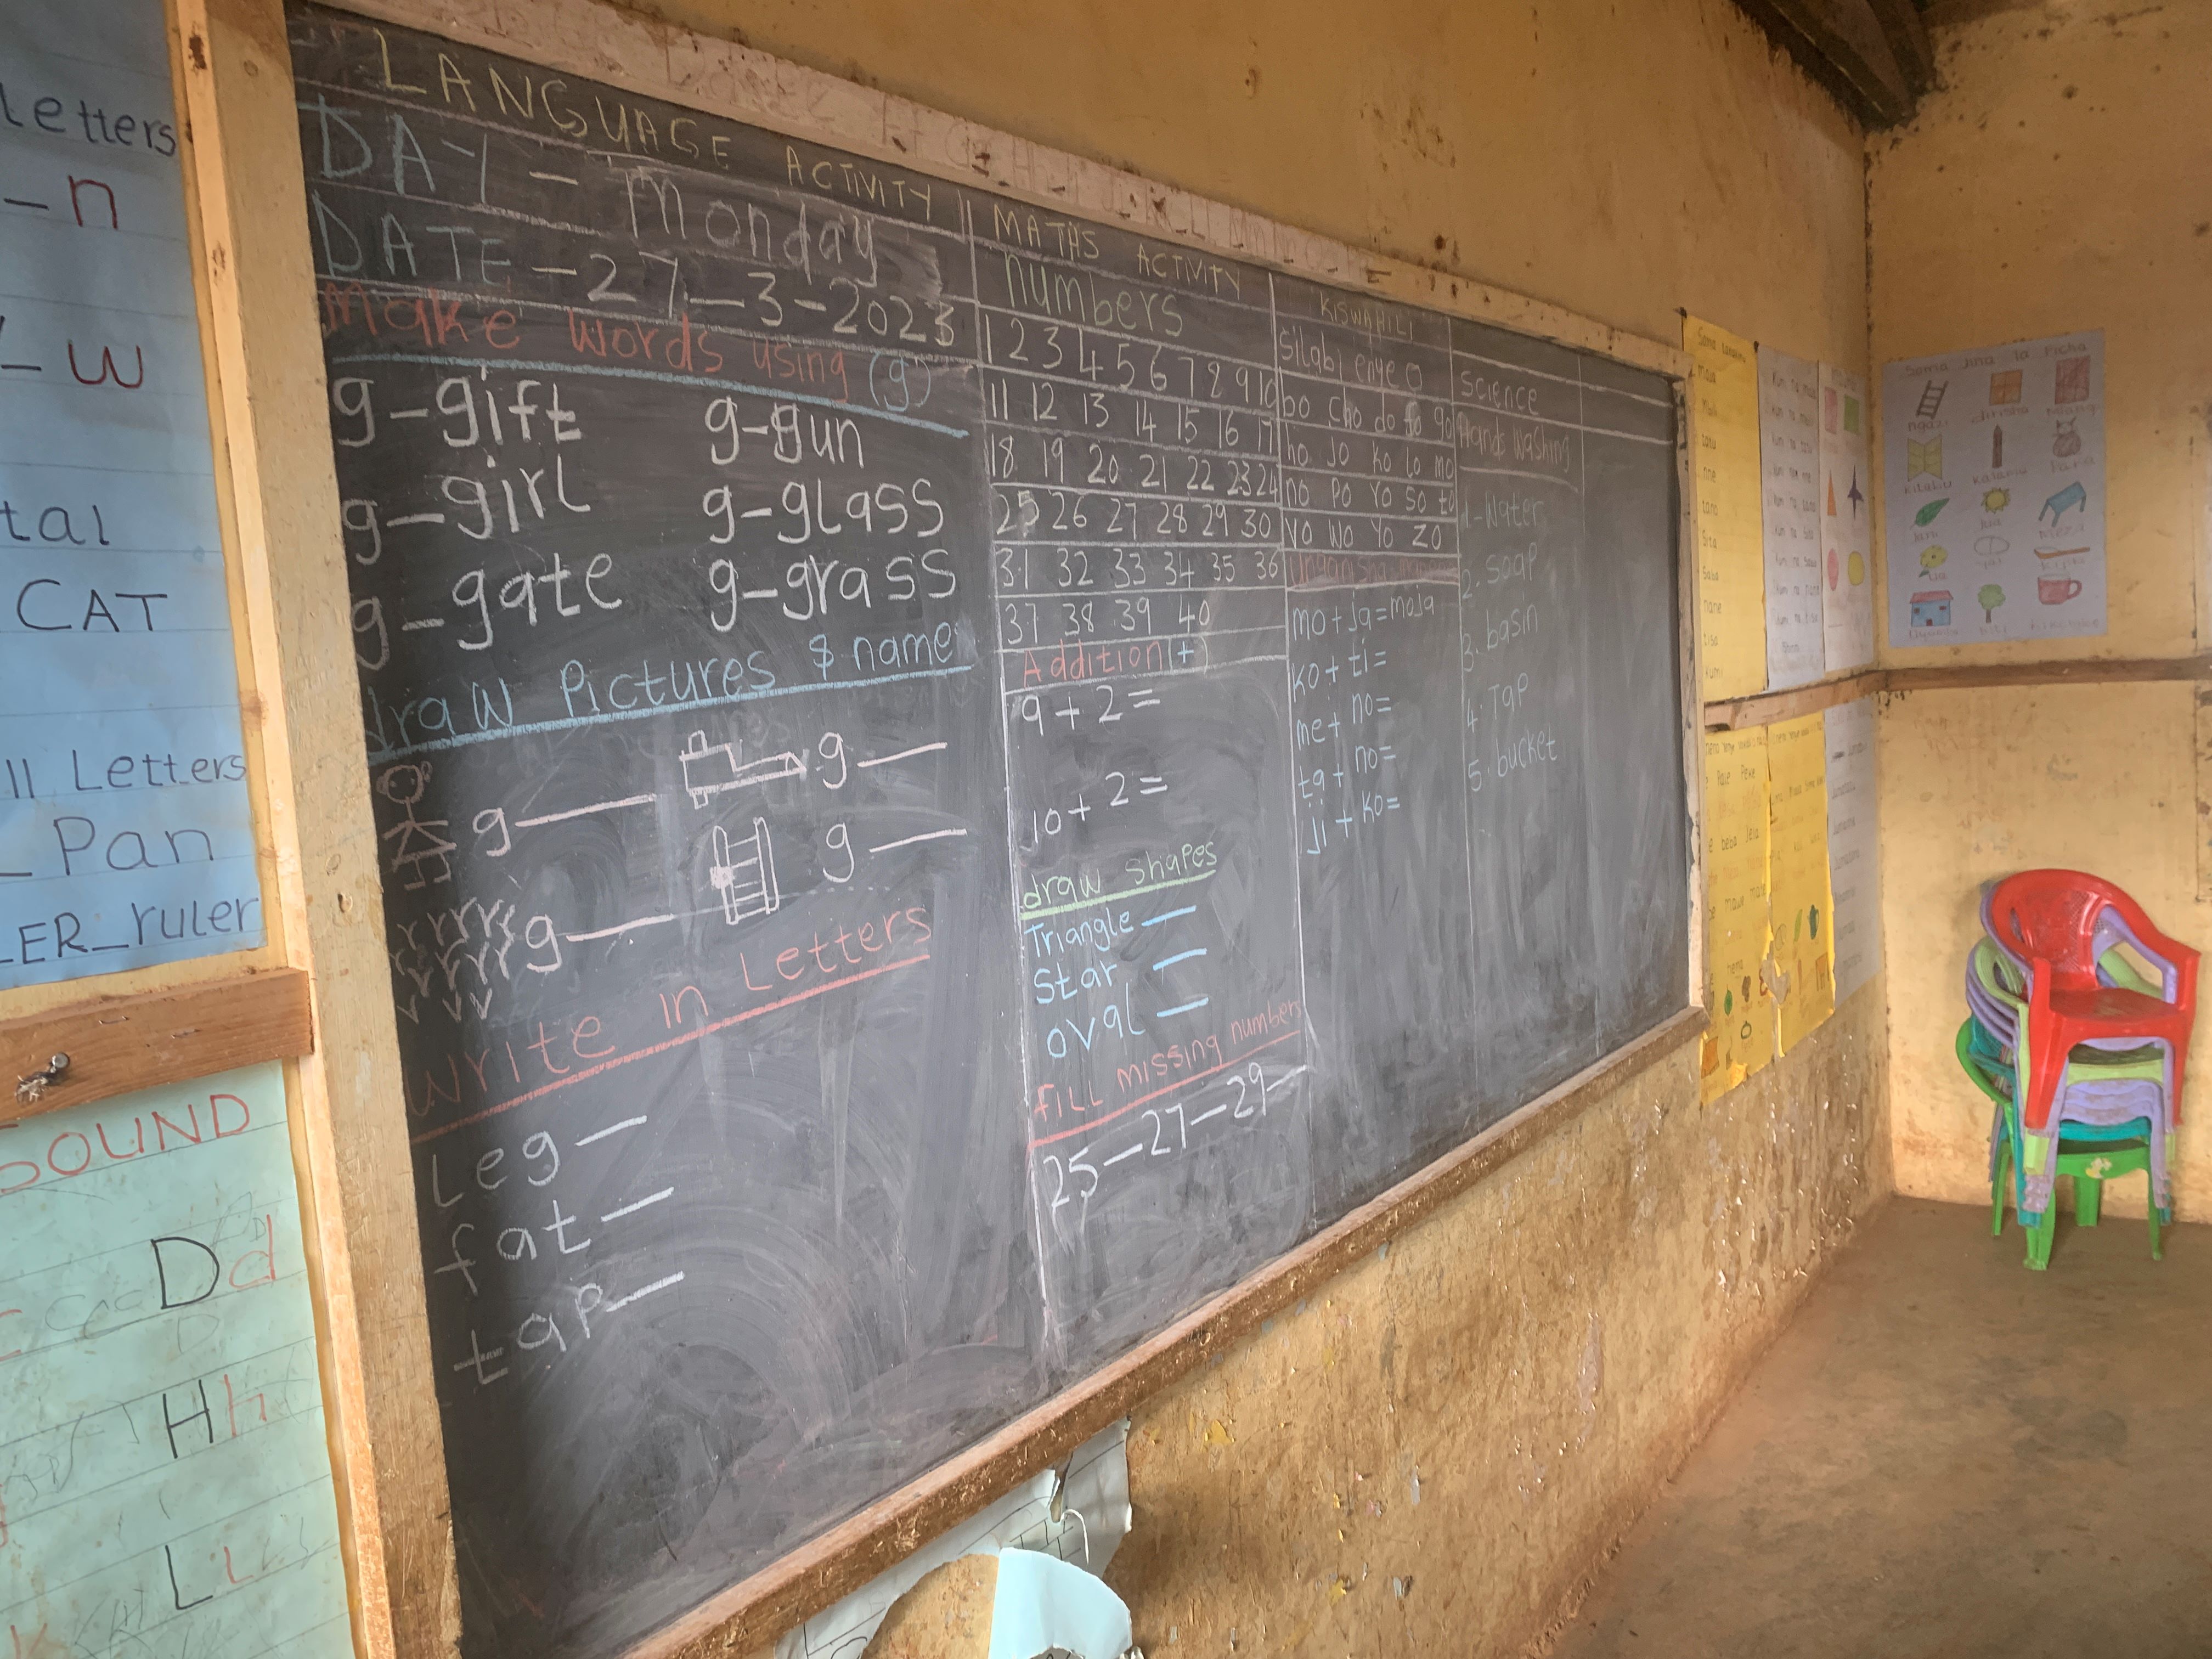 Letters
-n
-w
tal
CAT
ll Letters
_Pan
LER_ruler
SOUND
Dd
Hh
LL
LANGUAGE ACTIVITY
DAY - Monday
DATE - 27-3-2023
Make words using (g)
g-gift g-gun
g-girl g-glass
g-gate g-grass
draw Pictures & name
g g
g g
write in Letters
Leg-
fat-
tap-
MATHS ACTIVITY
numbers
1 2 3 4 5 6 7 8 9 10
11 12 13 14 15 16 17
18 19 20 21 22 23 24
25 26 27 28 29 30
31 32 33 34 35 36
37 38 39 40
Addition (+)
9+2=
10+2=
draw shapes
Triangle -
Star -
oval -
fill missing numbers
25-27-29-
KISWAHILI
Silabi enye o
bo cho do fo go
ho jo ko lo mo
no po ro so to
vo wo yo zo
mo+ja=moja
ko+ti=
me+no=
ta+no=
ji+ko=
science
Hands washing
1-water
2. soap
3. basin
4. Tap
5. bucket
Soma Jina la Picha
ngazi dirisha
kitabu kalamu
jua meza
ua
nyumba